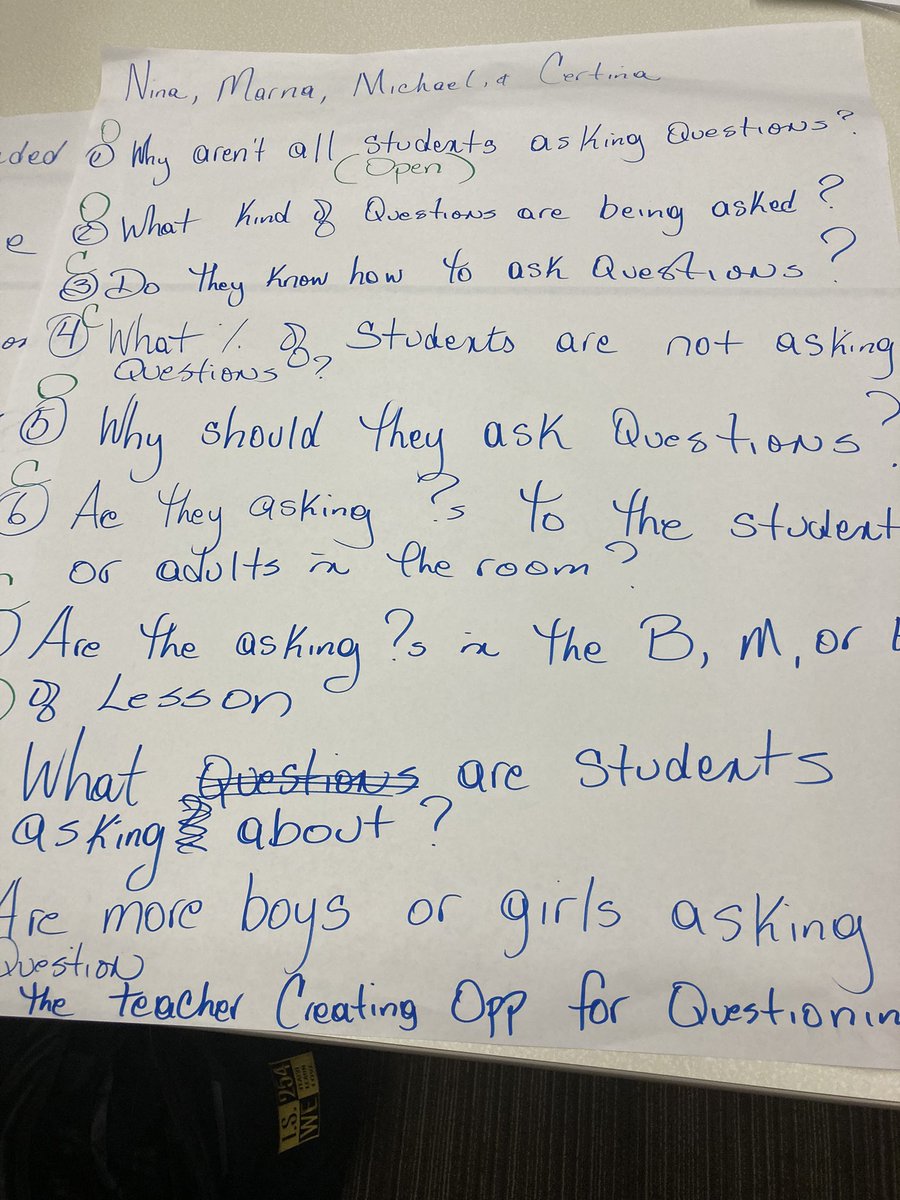 Nina, Marna, Michael, & Certina
O
① Why aren't all students asking Questions?
(Open)
O
② What Kind of Questions are being asked?
C
③ Do they know how to ask Questions?
C
④ What % of Students are not asking
Questions?
O
⑤ Why should they ask Questions?
C
⑥ Ae they asking ?s to the student
or adults in the room?
Are the asking ?s in the B, M, or
of Lesson
What Questions are students
asking about?
Are more boys or girls asking
Question
the teacher Creating Opp for Questionin
ded
e
or
I.S. 254
WE